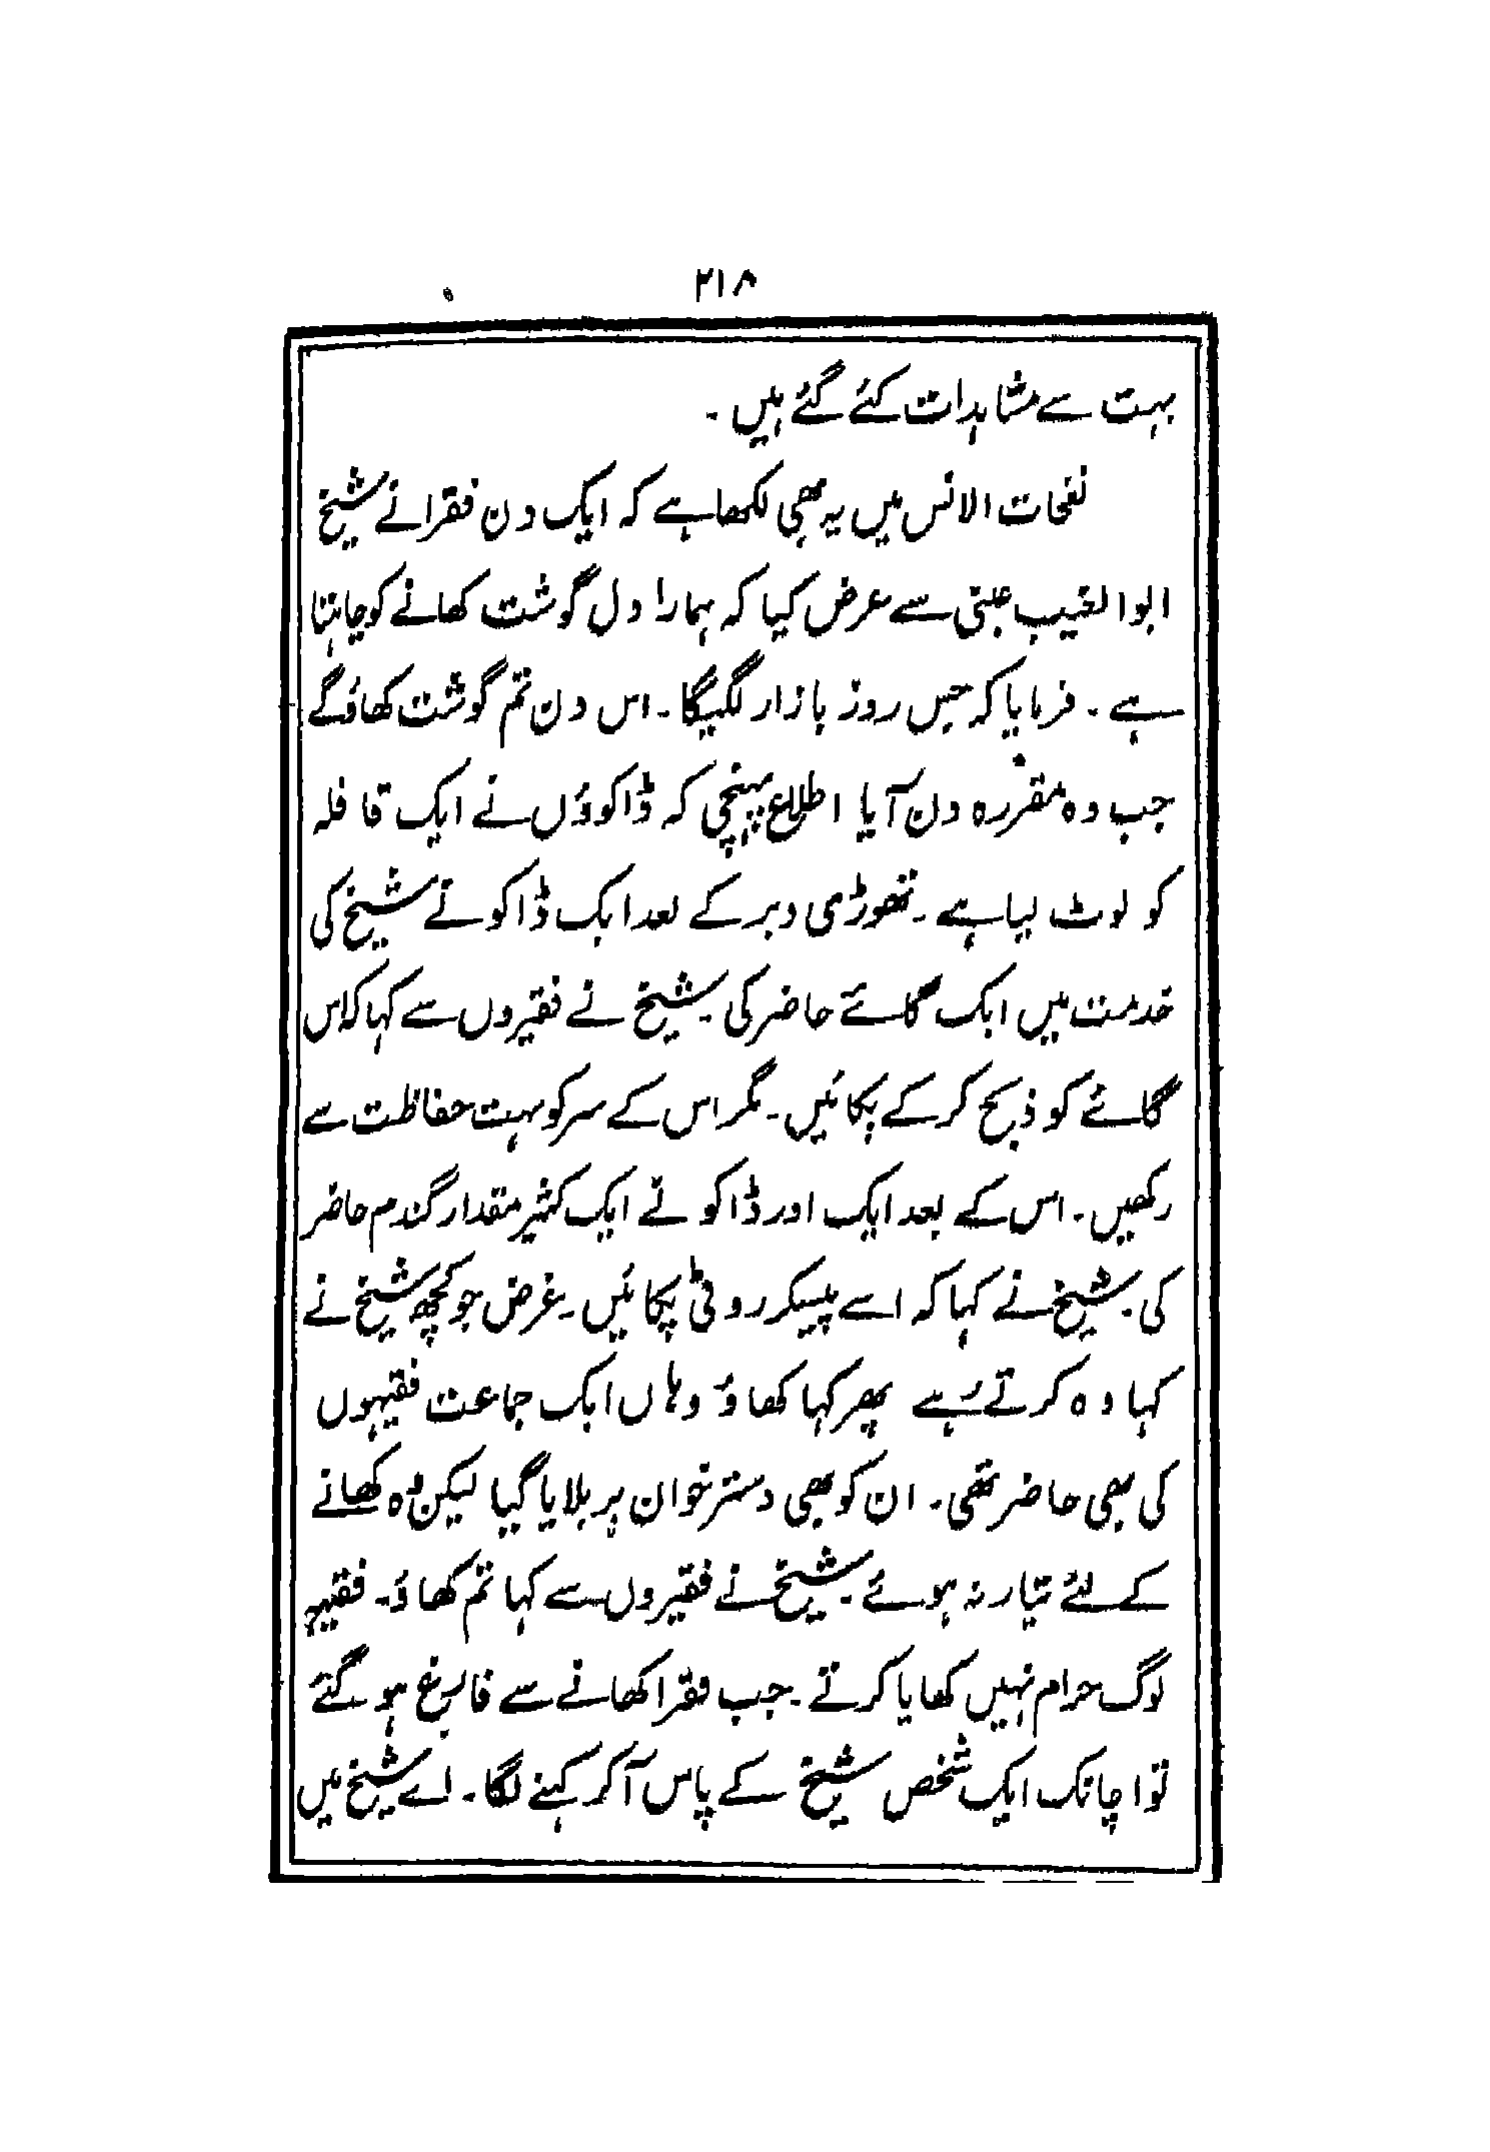 ۲۱۸
بہت سے مشاہدات کئے گئے ہیں ۔
نفحات الانس میں یہ بھی لکھا ہے کہ ایک دن فقرا نے شیخ
ابو الغیب سے عرض کیا کہ ہمارا دل گوشت کھانے کو چاہتا
ہے ۔ فرمایا کہ جس روز بازار لگیگا ۔ اس دن تم گوشت کھاؤ گے
جب وہ مقررہ دن آیا اطلاع پہنچی کہ ڈاکوؤں نے ایک قافلہ
کو لوٹ لیا ہے ۔ تھوڑی دیر کے بعد ایک ڈاکو نے شیخ کی
خدمت میں ایک گائے حاضر کی ۔ شیخ نے فقیروں سے کہا کہ اس
گائے کو ذبح کر کے پکائیں ۔ مگر اس کے سر کو بہت حفاظت سے
رکھیں ۔ اس کے بعد ایک اور ڈاکو نے ایک کثیر مقدار گندم حاضر
کی ۔ شیخ نے کہا کہ اسے پیسکر روٹی پکائیں ۔ غرض جو کچھ شیخ نے
کہا وہ کرتے رہے پھر کہا کھاؤ وہاں ایک جماعت فقیہوں
کی بھی حاضر تھی ۔ ان کو بھی دسترخوان پر بلایا گیا لیکن وہ کھانے
کے لئے تیار نہ ہوئے ۔ شیخ نے فقیروں سے کہا تم کھاؤ ۔ فقیہہ
لوگ حرام نہیں کھایا کرتے ۔ جب فقرا کھانے سے فارغ ہو گئے
تو اچانک ایک شخص شیخ کے پاس آکر کہنے لگا ۔ اے شیخ میں